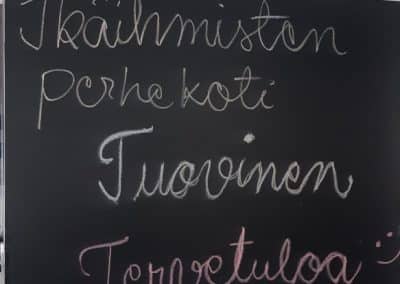 Ikäihmisten
perhekoti
Tuovinen
Tervetuloa :)